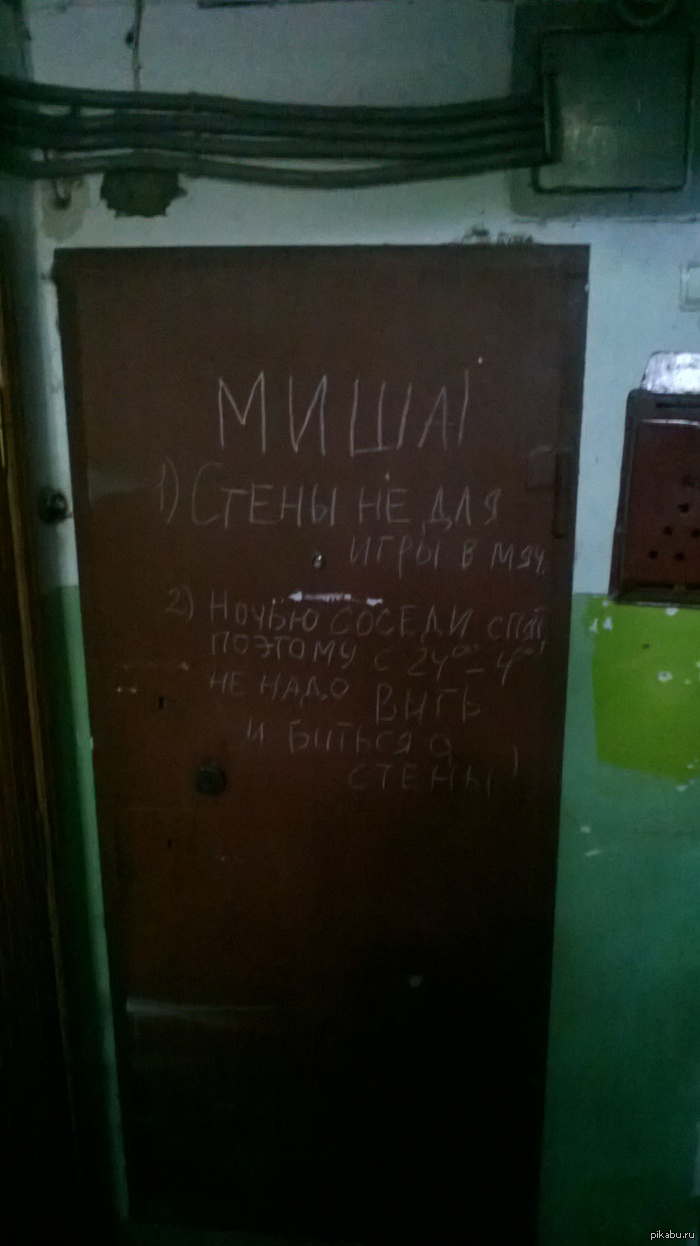 МИША!
1) СТЕНЫ НЕ ДЛЯ
ИГРЫ В МЯЧ.
2) НОЧЬЮ СОСЕДИ СПЯТ
ПОЭТОМУ С 24⁰⁰ – 4⁰⁰
НЕ НАДО ВЫТЬ
И БИТЬСЯ О
СТЕНЫ!
pikabu.ru